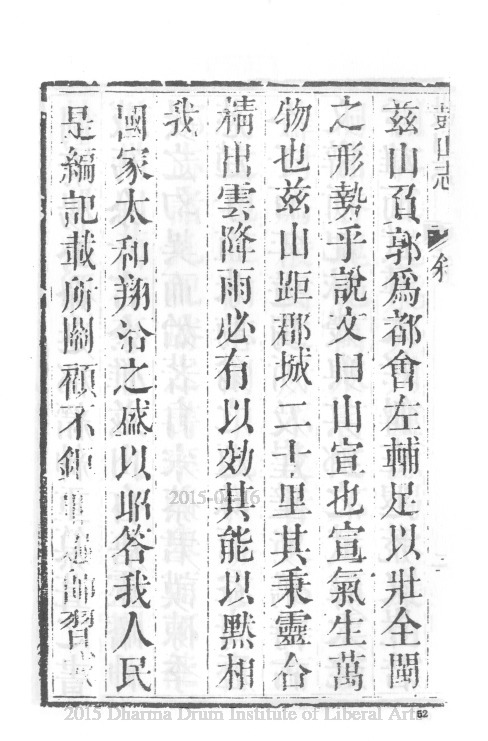 鼓山志 叙
茲山負郭爲都會左輔足以壯全閩
之形勢乎說文曰山宣也宣氣生萬
物也茲山距郡城二十里其秉靈合
精出雲降雨必有以効其能以默相
我
國家太和翔洽之盛以昭答我人民
是編記載所關顧不鉅
2015-04-16
2015 Dharma Drum Institute of Liberal Arts
62